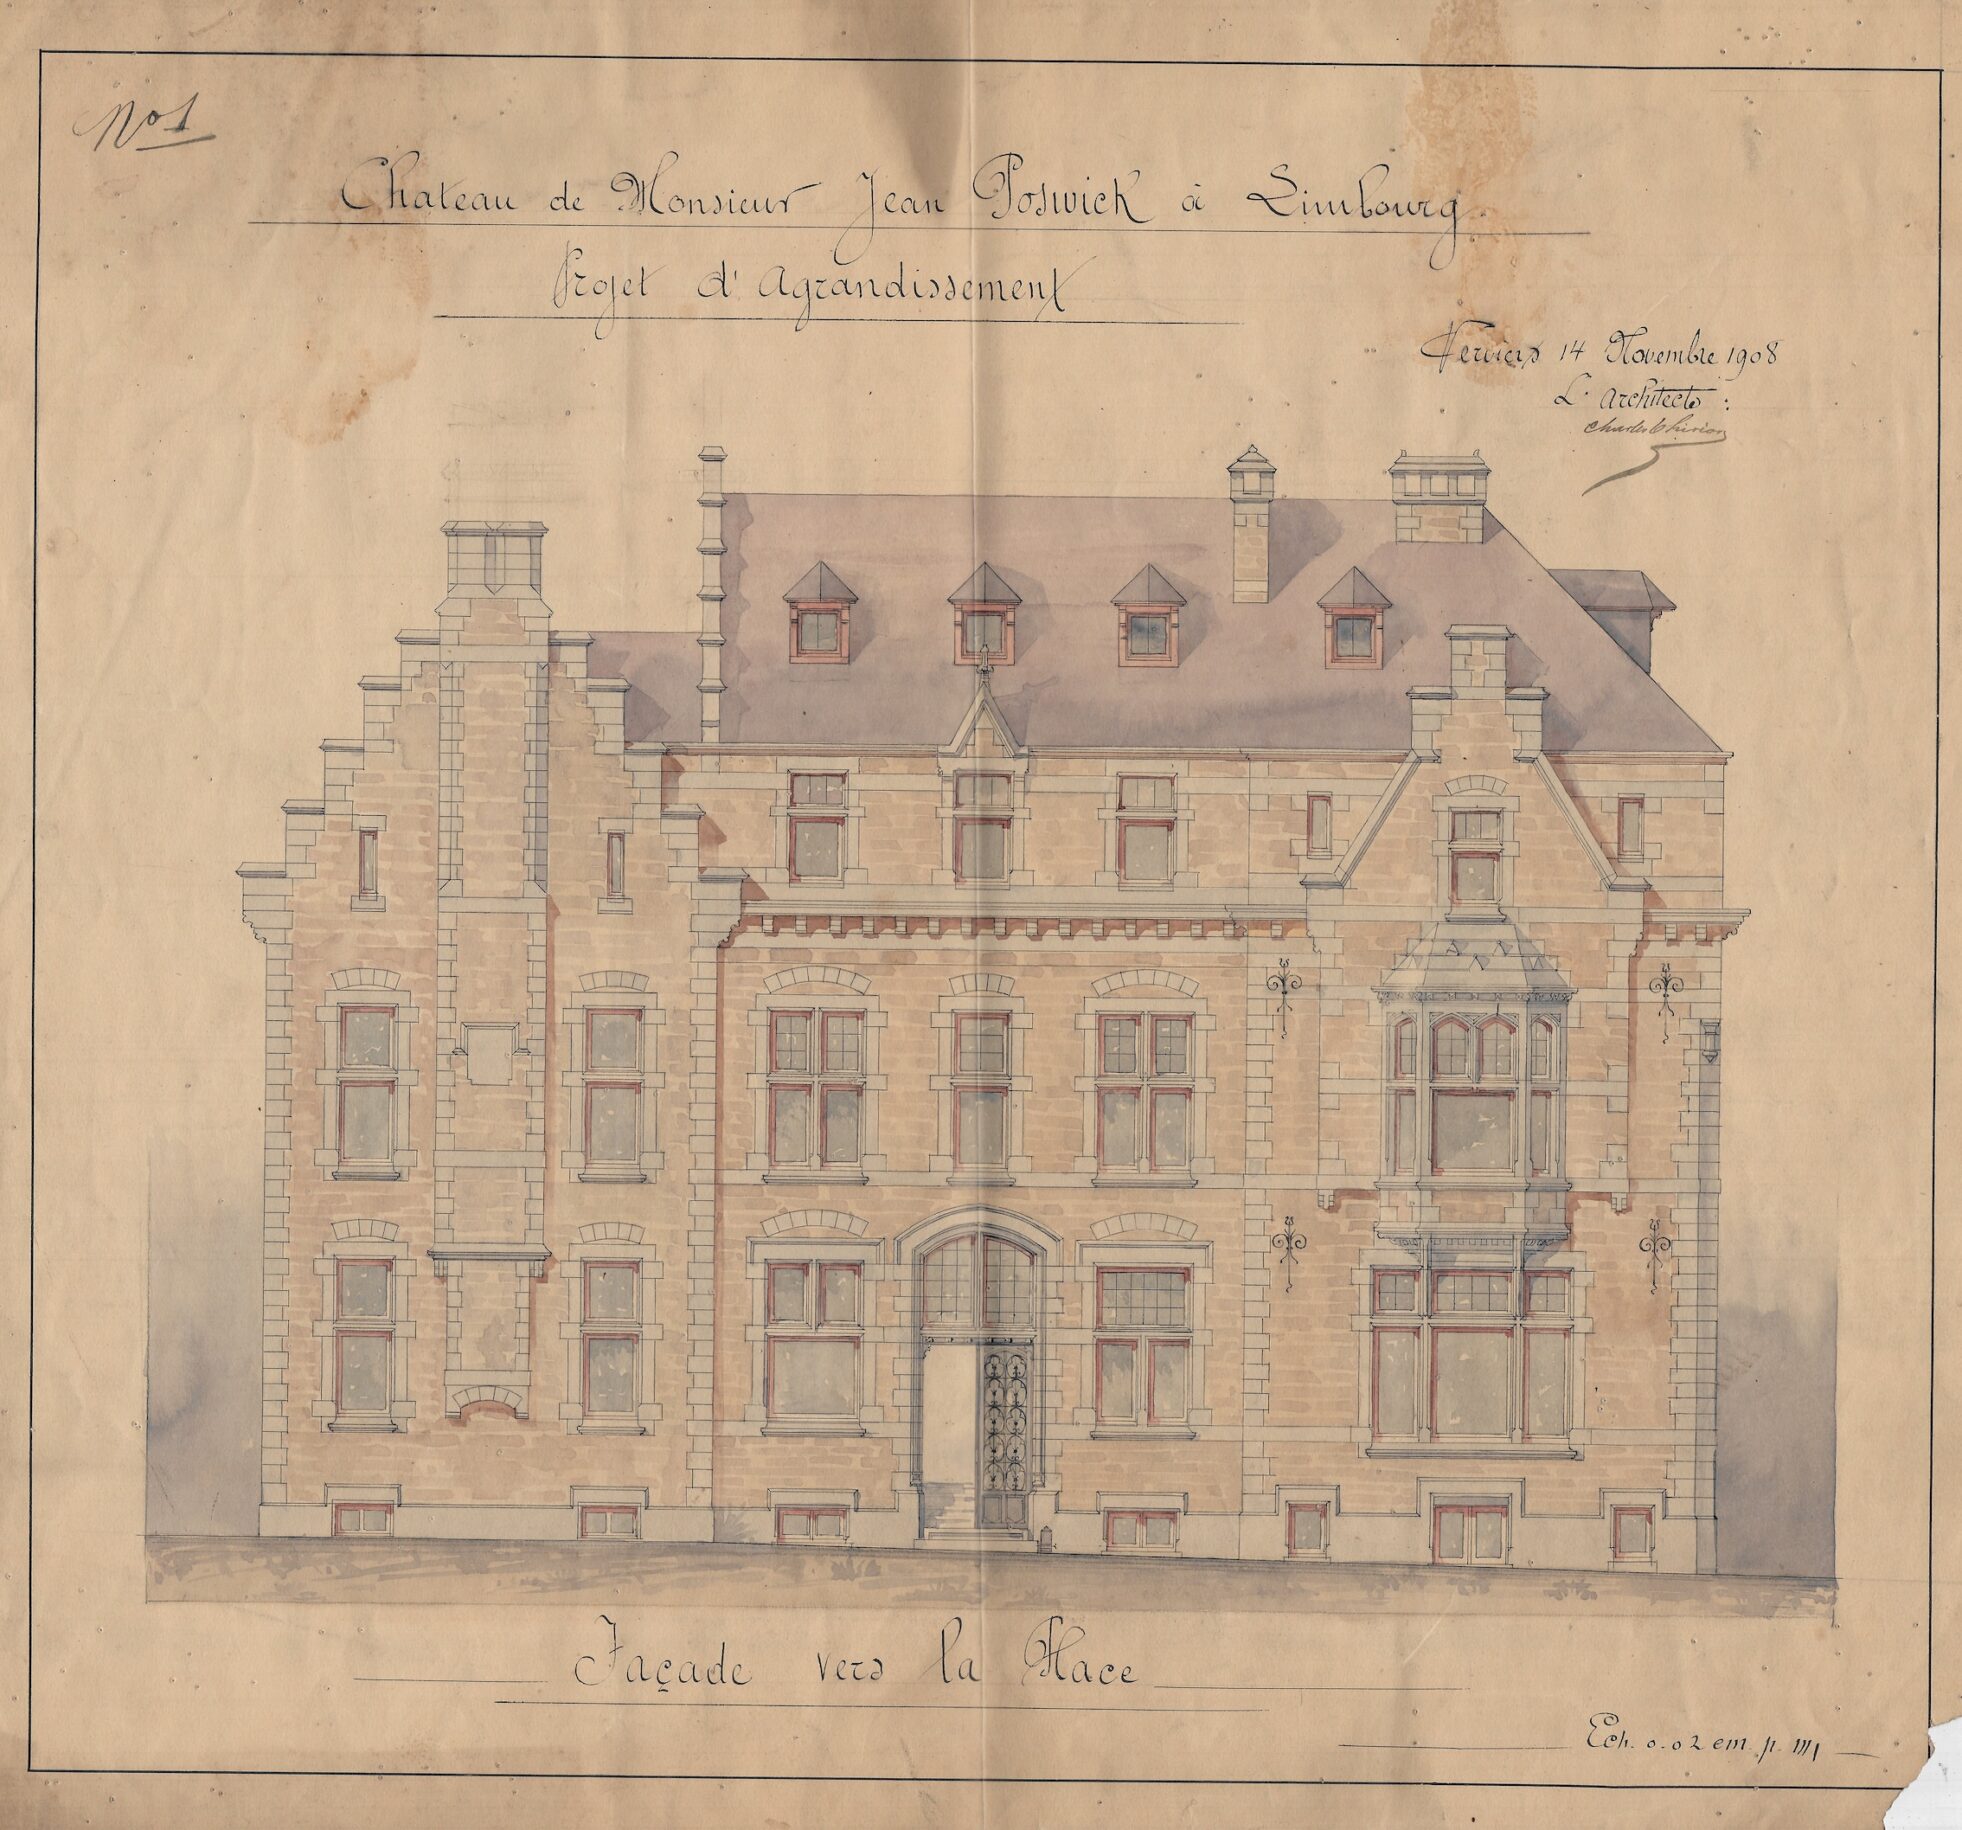 No 1
Chateau de Monsieur Jean Poswick à Limbourg.
Projet d'Agrandissement
Verviers 14 Novembre 1908
L'Architecte :
Charles Thirion
Façade vers la Place
Ech. 0.02 cm. p. m